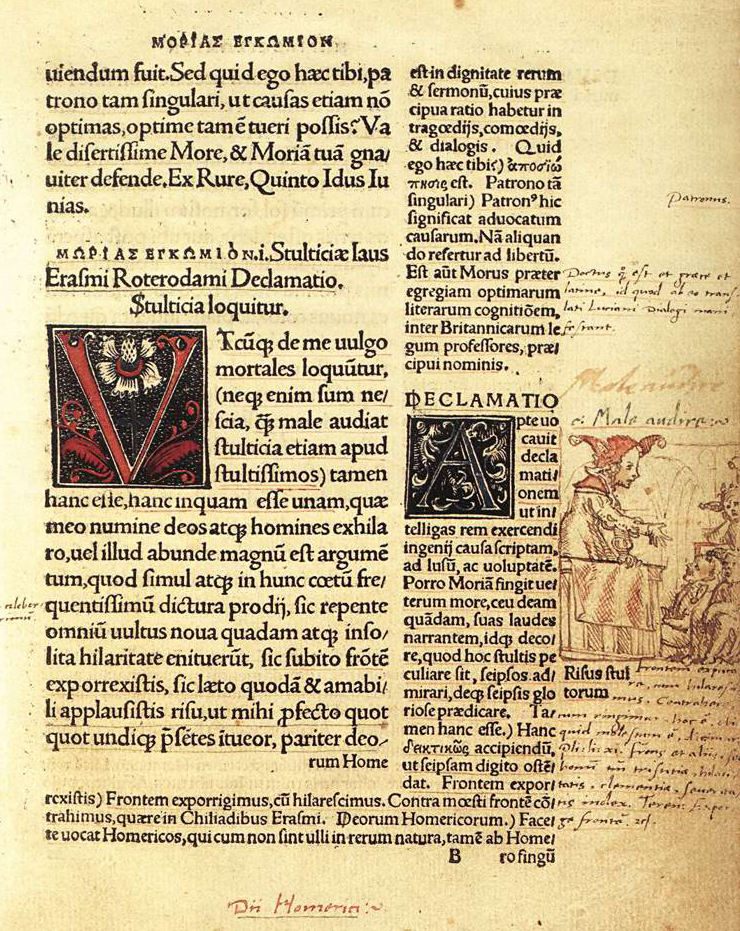 ΜΟΡΙΑΣ ΕΓΚΩΜΙΟΝ
uiendum fuit. Sed quid ego hæc tibi, pa
trono tam singulari, ut causas etiam nō
optimas, optime tamē tueri possis? Va
le disertissime More, & Moriā tuā gna/
uiter defende. Ex Rure, Quinto Idus Iu
nias.
ΜΩΡΙΑΣ ΕΓΚΩΜΙΟΝ .i. Stulticiæ laus
Erasmi Roterodami Declamatio.
Stulticia loquitur.
VTcūqꝫ de me uulgo
mortales loquūtur,
(neqꝫ enim sum ne/
scia, q̄ꝫ male audiat
stulticia etiam apud
stultissimos) tamen
hanc esse, hanc inquam esse unam, quæ
meo numine deos atqꝫ homines exhila
ro, uel illud abunde magnū est argumē
tum, quod simul atqꝫ in hunc cœtū fre/
quentissimū dictura prodij, sic repente
omniū uultus noua quadam atqꝫ inso/
lita hilaritate enituerūt, sic subito frōtē
exporrexistis, sic læto quodā & amabi/
li applausistis risu, ut mihi ꝓfecto quot
quot undiqꝫ p̄sētes ītueor, pariter deo/
rum Home
est in dignitate rerum
& sermonū, cuius præ
cipua ratio habetur in
tragœdijs, comœdijs,
& dialogis. Quid
ego hæc tibi) ἀποσιώ
πησις est. Patrono tā
singulari) Patronꝰ hic
significat aduocatum
causarum. Nā aliquan
do refertur ad libertū.
Est aūt Morus præter
egregiam optimarum
literarum cognitiōem,
inter Britannicarum le/
gum professores, præ/
cipui nominis.
DECLAMATIO
Apte uo
cauit
decla
mati/
onem
ut in/
telligas rem exercendi
ingenij causa scriptam,
ad lusū, ac uoluptatē.
Porro Moriā fingit ue/
terum more, ceu deam
quādam, suas laudes
narrantem, idqꝫ deco/
re, quod hoc stultis pe
culiare sit, seipsos ad/
mirari, deqꝫ seipsis glo
riose prædicare. Ta/
men hanc esse.) Hanc
δεικτικῶς accipiendū,
ut seipsam digito ostē/
dat. Frontem expor/
rexistis) Frontem exporrigimus, cū hilarescimus. Contra mœsti frontē cō/
trahimus, quære in Chiliadibus Erasmi. Deorum Homericorum.) Face/
te uocat Homericos, qui cum non sint ulli in rerum natura, tamē ab Home/
B ro fingū
Patronus.
Doctus est et græce et
latine, id quod ab eo trans/
lati Luciani Dialogi mani/
festant.
Male audire
Male audire
Risus stul
torum
Dii Homerici